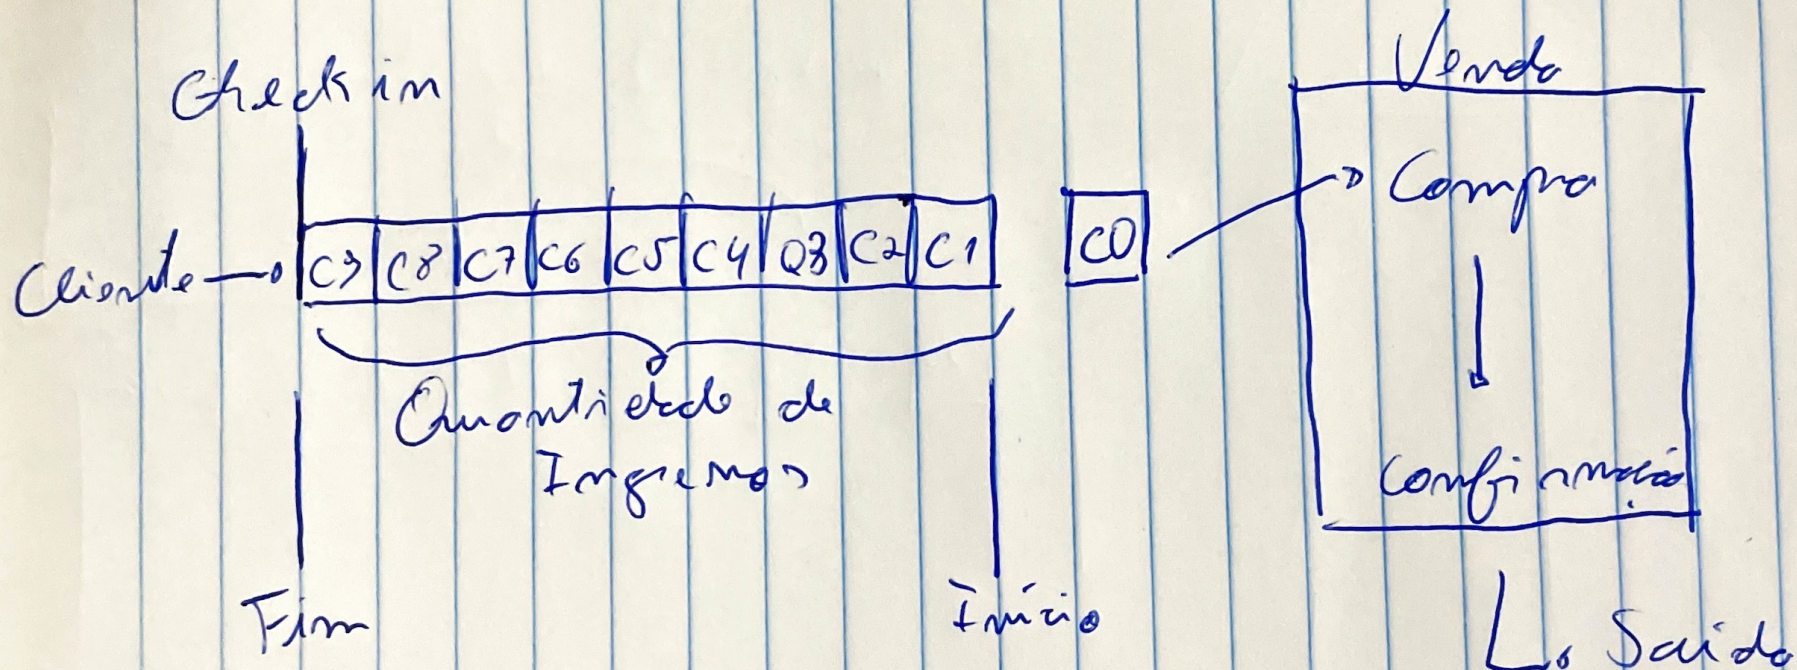 Check in
Venda
Compra
Cliente
C9 C8 C7 C6 C5 C4 Q3 C2 C1
C0
Quantidade de
Ingressos
Confirmação
Fim
Início
Saida